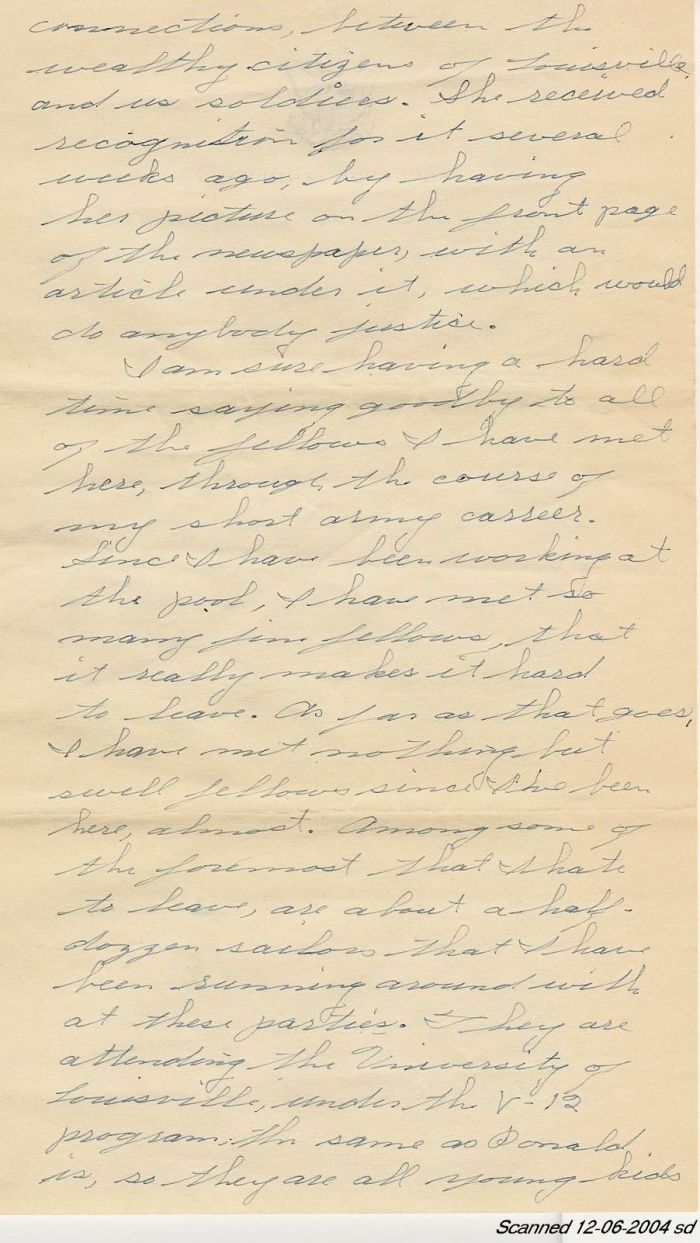 connections, between the
wealthy citizens of Louisville,
and us soldiers. She received
recognition for it several
weeks ago, by having
her picture on the front page
of the newspaper, with an
article under it, which would
do anybody justice.
I am sure having a hard
time saying goodby to all
of the fellows I have met
here, through the course of
my short army carreer.
Since I have been working at
the pool, I have met so
many fine fellows, that
it really makes it hard
to leave. As far as that goes,
I have met nothing but
swell fellows since I've been
here, almost. Among some of
the foremost that I hate
to leave, are about a half-
dozzen sailors that I have
been running around with
at these parties. They are
attending the University of
Louisville, under the V-12
program, the same as Donald
is, so they are all young kids
Scanned 12-06-2004 sd